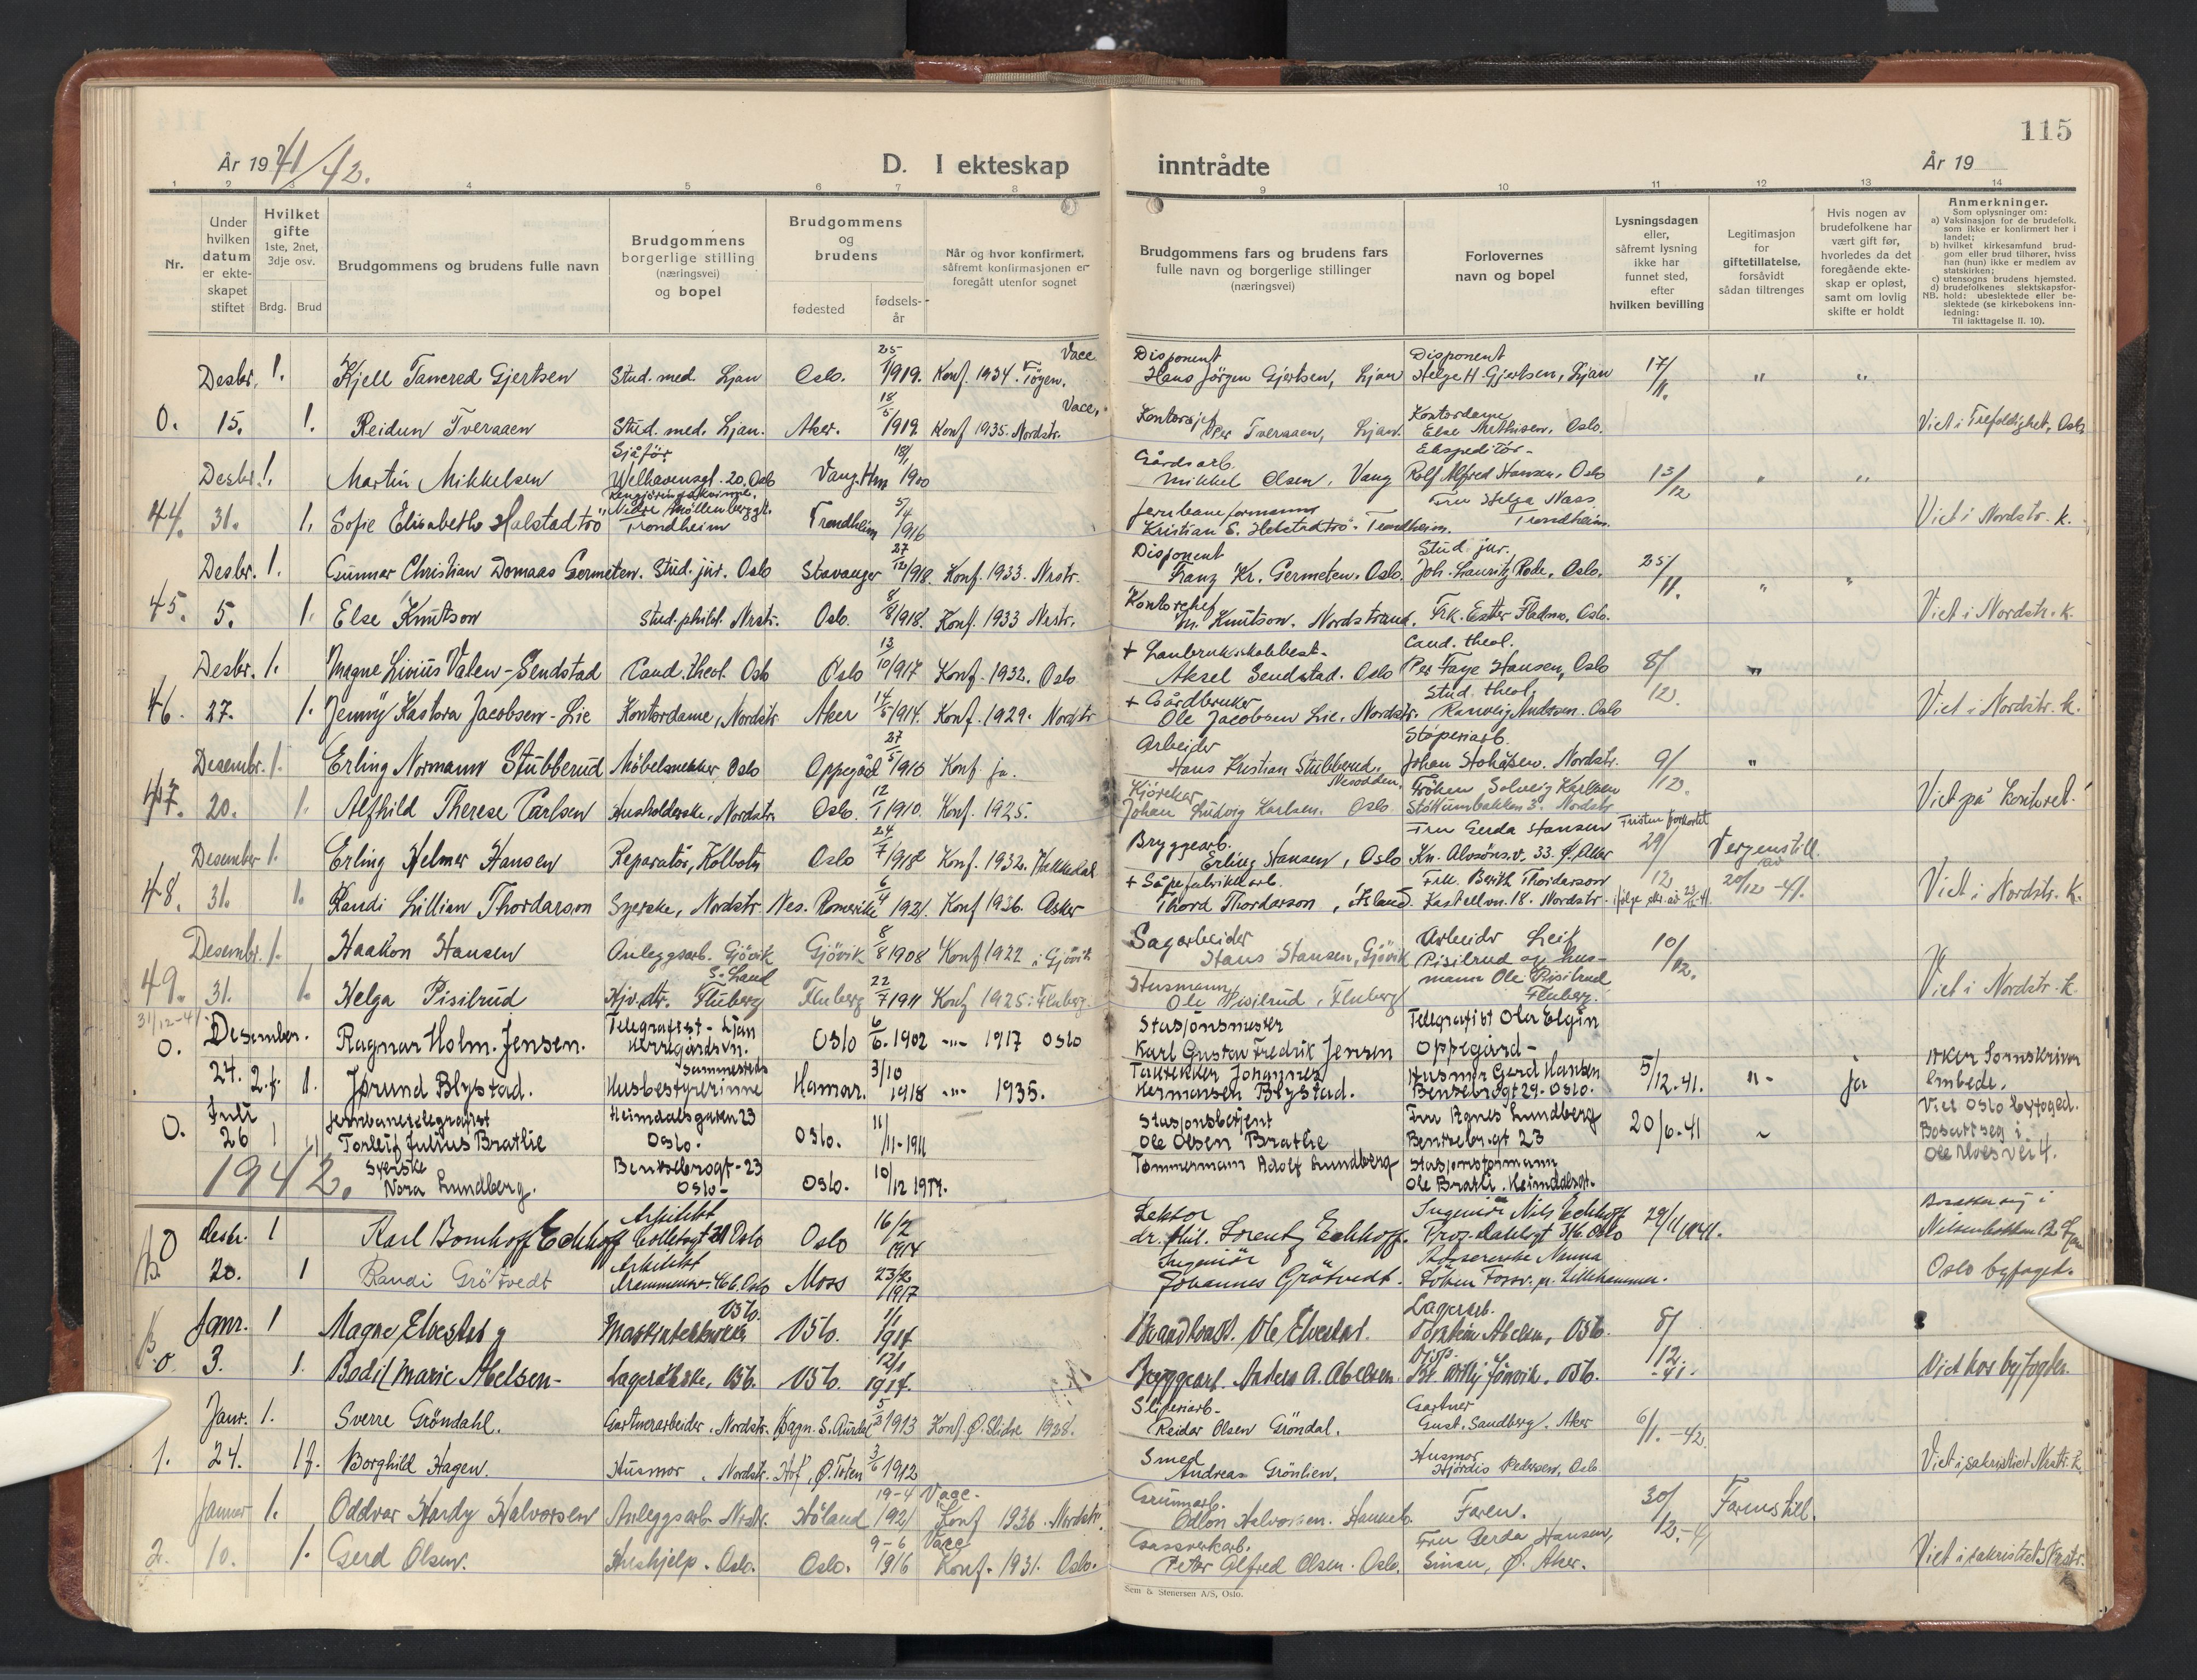 115
År 1941/42.
D. I ekteskap inntrådte
År 19
1 2 3 4 5 6 7 8 9 10 11 12 13 14
Nr.
Under hvilken datum er ekteskapet stiftet
Hvilket gifte 1ste, 2net, 3dje osv.
Brdg. Brud
Brudgommens og brudens fulle navn
Brudgommens borgerlige stilling (næringsvei) og bopel
Brudgommens og brudens
fødested
fødselsår
Når og hvor konfirmert, såfremt konfirmasjonen er foregått utenfor sognet
Brudgommens fars og brudens fars fulle navn og borgerlige stillinger (næringsvei)
Forlovernes navn og bopel
Lysningsdagen eller, såfremt lysning ikke har funnet sted, efter hvilken bevilling
Legitimasjon for giftetillatelse, forsåvidt sådan tiltrenges
Hvis nogen av brudefolkene har vært gift før, hvorledes da det foregående ekteskap er opløst, samt om lovlig skifte er holdt
Anmerkninger.
Som oplysninger om:
a) Vaksinasjon for de brudefolk, som ikke er konfirmert her i landet;
b) hvilket kirkesamfund brudgom eller brud tilhører, hviss han (hun) ikke er medlem av statskirken;
c) utensogns brudens hjemsted.
d) brudefolkenes slektskapsforhold: ubeslektede eller beslektede (se kirkebokens innledning:
NB.
Til iakttagelse II. 10).
Desbr. 1. Kjell Tancred Gjertsen Stud. med. Ljan Oslo. 25/1 1919. Konf. 1934. Tøyen. Vacc. Disponent Hans Jörgen Gjertsen, Ljan Disponent Helge H. Gjertsen, Ljan 17/11. " "
0. 15. 1. Reidun Tveraaen Stud. med. Ljan. Aker. 18/5 1919 Konf 1935. Nordstr. Vacc. Kontorsjef Per Tveraaen, Ljan. Kontordame Else Mathisen, Oslo. Viet i Trefoldighet, Oslo
Desbr. 1. Martin Mikkelsen Sjåför Welhavensgt. 20. Oslo Vang. Hm 18/1 1900 Gårdsarb. Mikkel Olsen, Vang Ekspeditör Rolf Alfred Hansen, Oslo 13/12 " "
44. 31. 1. Sofie Elisabeth Halstadtrö Rengjöringskvinne, Nidre Möllenberggt. Trondheim Trondheim 5/4 1916 Jernbaneformann Kristian E. Halstadtrö. Trondheim. Fru Helga Naas Trondheim. Viet i Nordstr. k.
Desbr. 1. Gunnar Christian Domaas Germeten. Stud. jur. Oslo Stavanger 27/12 1918. Konf. 1933. Nrstr. Disponent Franz Kr. Germeten. Oslo. Stud. jur. Joh. Lauritz Rode, Oslo. 25/11. " "
45. 5. 1. Else Knutson Stud. philol. Nrstr. Oslo. 8/9 1918. Konf. 1933 Nrstr. Kontorchef M. Knutson. Nordstrand. Frk. Ester Fladmo, Oslo. Viet i Nordstr. k.
Desbr. 1. Magne Livius Valen-Sendstad Cand. theol. Oslo Oslo 13/10 1917 Konf. 1932. Oslo + Aksel Sendstad. Oslo Cand. theol. Per Faye Hansen, Oslo 8/12. "
46. 27. 1. Jenny Kastora Jacobsen-Lie Kontordame, Nordstr. Aker 14/5 1914. Konf. 1929. Nordstr. + Gårdbruker Ole Jacobsen Lie. Nordstr. Stud. theol. Ranveig Andersen. Oslo Viet i Nordstr. k.
Desembr. 1. Erling Normann Stubberud Möbelsnekker, Oslo Oppegård 27/5 1910 Konf. ja. Arbeider Hans Kristian Stubberud. Nesodden. Støperiarb. Johan Nordstr. 9/12. "
47. 20. 1. Alfhild Therese Carlsen Husholderske, Nordstr. Oslo. 12/1 1910. Konf. 1925. Kjörekar Johan Ludvig Karlsen. Oslo Fröken Solveig Karlsen 3. Nordstr. Viet på kontoret.
Desember 1. Erling Helmer Hansen Reparatör, Kolbotn Oslo 24/7 1918 Konf. 1932. Hakkadal Bryggearb. Erling Hansen, Oslo Fru Gerda Hansen Kn. Alvsöns v. 33. Ø. Aker Fristen forkortet 29/12 Vergens till. av 20/12 -41.
48. 31. 1. Randi Lillian Thordarson Syerske, Nordstr. Nes. Romerike 6/4 1921. Konf 1936. Asker + Såpefabrikkarb. Thord Thordarson, Island. Frk. Berith Thordarson Kastellvn. 18. Nordstr. Viet i Nordstr. K.
Desembr. 1. Haakon Hansen Anleggsarb. Gjövik Gjövik 8/8 1908 Konf 1922 i Gjövik Sagarbeider Hans Hansen, Gjövik Arbeider Leif Pisilrud og husmann Ole Pisilrud Fluberg. 10/12.
49. 31. 1. Helga Pisilrud Hjv. dtr. S. Land Fluberg Fluberg 22/7 1911 Konf 1925 i Fluberg. Husmann Ole Pisilrud, Fluberg Viet i Nordstr. k.
31/12-41
0. Desember. Ragnar Holm-Jensen. Telegrafist - Ljan Herregårdsvn. Oslo 6/6. 1902 -"- 1917 Oslo Stasjonsmester Karl Gustav Fredrik Jensen Telegrafist Ola Elgin Oppegård-
24. 2.f. 1. Jörund Blystad. Sammesteds Husbestyrerinne Hamar. 3/10 1918 -"- 1935. Taktekker Johannes Hermansen Blystad. Husmor Gerd Hansen Bentsebrogt 29. Oslo. 5/12-41. "- ja Aker Sorenskriver Embede.
0. Juli 26 1 Jernbanetelegrafist Torleif Julius Bratlie Heimdalsgaten 23 Oslo. Oslo. 11/11-1911 Stasjonsbetjent Ole Olsen Bratlie Fru Agnes Lundberg Bentsebr.gt 23 20/6-41 Viet Oslo byfoged. Bosatt seg i Ole Moes vei 4.
1942. Syerske Nora Lundberg. Bentsebrogt-23 Oslo- Oslo. 10/12 1914. Tømmermann Adolf Lundberg Stasjonsformann Ole Bratli. Heimdalsgt.
Desbr. 1 Karl Bomhoff Eckhoff Arkitekt Oslo Oslo 16/2 1914 Lektor dr. phil. Lorentz Eckhoff. Ingeniör Nils Eckhoff Prof. Dahlsgt 36. Oslo 29/11 1941. Bosetter seg i Ljan
20. 1 Randi Grötvedt Arkitekt Oslo Moss 23/2 1917 Ingeniör Johannes Grötvedt. Nanna pr. Lillehammer. Oslo byfoged.
Janr. 1 Magne Elvestad Oslo. Oslo. 1/1 1914 Ole Elvestad. Lagerarb. Abelsen, Oslo. 8/12. -41.
3. 1. Bodil Marie Abelsen- Oslo. Oslo. 12/1 1914. Byggearb. Anders A. Abelsen Oslo. Viet hos byfogden.
Janr. 1. Sverre Gröndahl. Gartnerarbeider. Nordstr. Bagn. S. Aurdal 5/3 1913 Konf. Ø. Slidre 1928. Sliperiarb. Reidar Olsen Gröndal. Gartner Gust. Sandberg. Aker 6/1.-42.
1. 24. 1 f. Borghild Hagen. Husmor, Nordstr. Hof, Ø. Toten 3/6 1912 Smed Andreas Grönlien. Husmor Hjördis Pedersen, Oslo Viet i sakristiet Nrstr. k.
Januar 1. Oddvar Hardy Halvorsen Anleggsarb. Nrstr. Höland 19-4 1921 Vacc. Konf 1936. Nordstr. Grunnarb. Odlon Halvorsen. Faren. 30/12.-41 Farens till.
2. 10. 1. Gerd Olsen. Hushjelp. Oslo. Oslo. 9-6 1916 Vacc. Konf. 1931. Oslo. Gassverkarb. Peter Alfred Olsen. Oslo. Fru Gerda Hansen, Sinsen, Ø. Aker. Viet i sakristiet Nrstr.
Sem & Stenersen A/S, Oslo.